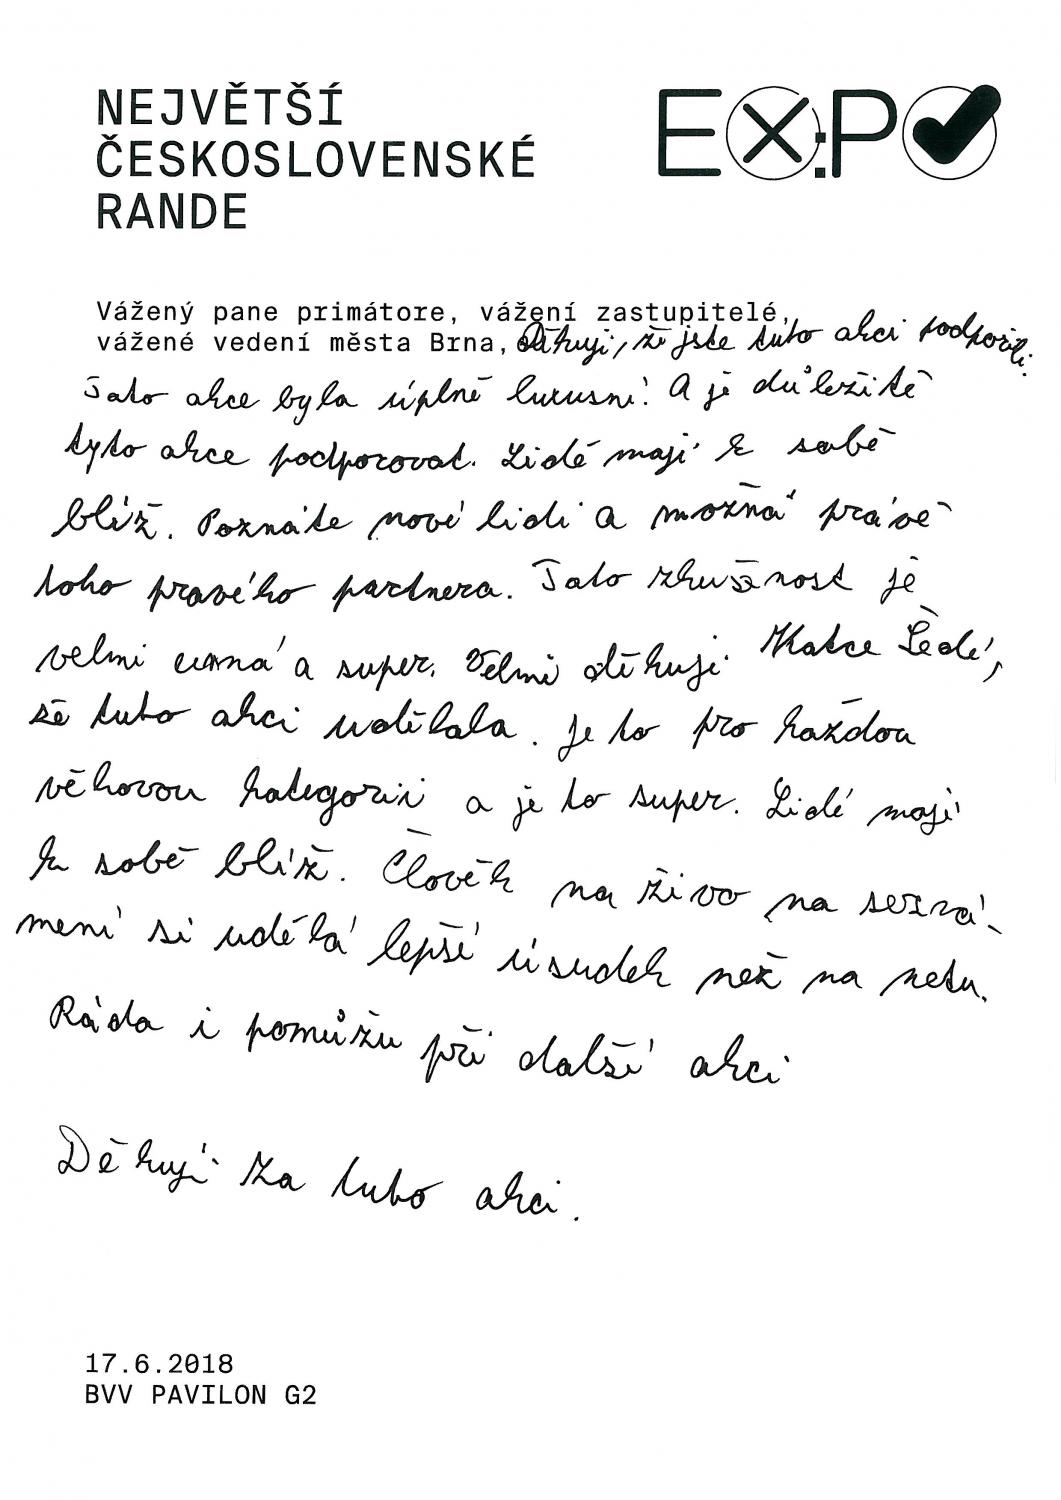 NEJVĚTŠÍ
ČESKOSLOVENSKÉ
RANDE
EX:PO
Vážený pane primátore, vážení zastupitelé,
vážené vedení města Brna, Děkuji, že jste tuto akci podpořili.
Tato akce byla úplně luxusní! A je důležité
tyto akce podporovat. Lidé mají k sobě
blíž. Poznáte nové lidi a možná právě
toho pravého partnera. Tato zkušenost je
velmi cenná a super. Velmi děkuji Katce Šedé,
že tuto akci udělala. Je to pro každou
věkovou kategorii a je to super. Lidé mají
k sobě blíž. Člověk na živo na sezná-
mení si udělá lepší úsudek než na netu.
Ráda i pomůžu při další akci
Děkuji za tuto akci.
17.6.2018
BVV PAVILON G2